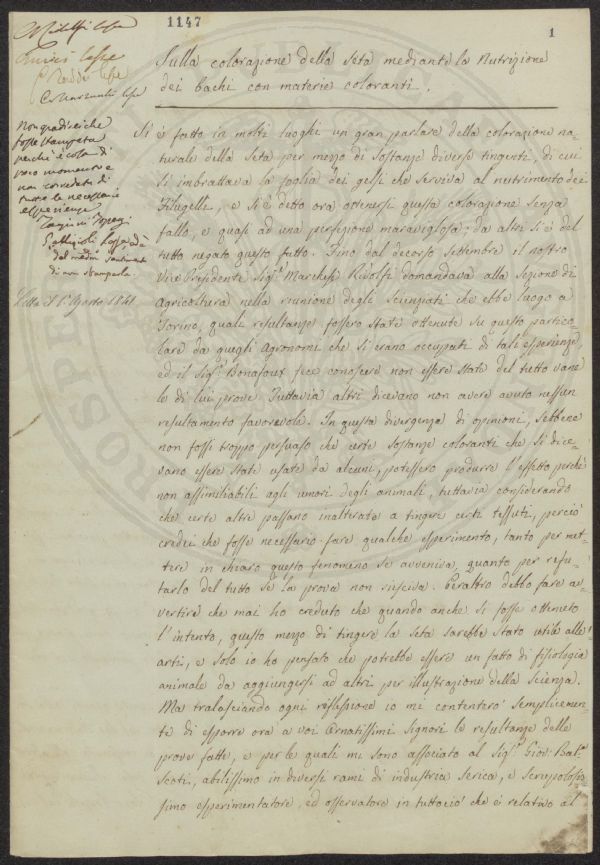 1147
1
Ridolfi lesse
lesse
C. Taddei lesse
C. lesse
Non giudicherei che
fosse stampata
perchè è cosa di
poco momento e
non corredata di
tutte le necessarie
esperienze
del medesimo sentimento
di non stamparla.
Letta il 1º Agosto 1841
Sulla colorazione della Seta mediante la Nutrizione
dei bachi con materie coloranti.
Si è fatto in molti luoghi un gran parlare della colorazione na-
turale della Seta per mezzo di Sostanze diverse tingenti, di cui
si imbrattava la foglia dei gelsi che serviva al nutrimento dei
Filugelli, e si è detto ora ottenersi questa colorazione senza
fallo, e quasi ad una perfezione maravigliosa; da altri si è del
tutto negato questo fatto. Fino dal decorso Settembre il nostro
Vice Presidente Sigr. Marchese Ridolfi domandava alla Sezione di
Agricoltura nella riunione degli Scienziati che ebbe luogo a
Torino, quali resultanze fossero state ottenute su questo partico-
lare da quegli Agronomi che si erano occupati di tali esperienze,
ed il Sigr. Bonafoux fece conoscere non essere state del tutto vane
le di lui prove. Tuttavia altri dicevano non avere avuto nessun
resultamento favorevole. In questa divergenza di opinioni, sebbene
non fossi troppo persuaso che certe sostanze coloranti che si dice-
vano essere state usate da alcuni, potessero produrre l'effetto perchè
non assimiliabili agli umori degli animali, tuttavia considerando
che certe altre passano inalterate a tingere certi tessuti, perciò
credei che fosse necessario fare qualche esperimento, tanto per met-
tere in chiaro questo fenomeno se avveniva, quanto per refu-
tarlo del tutto se la prova non riusciva. Peraltro debbo fare av-
vertire che mai ho creduto che quando anche si fosse ottenuto
l'intento, questo mezzo di tingere la Seta sarebbe stato utile alle
arti, e solo io ho pensato che potrebbe essere un fatto di fisiologia
animale da aggiungersi ad altri per illustrazione della Scienza.
Ma tralasciando ogni reflessione io mi contenterò semplicemen-
te di esporre ora a voi Ornatissimi Signori le resultanze delle
prove fatte, e per le quali mi sono associato al Sigr. Giov: Bat.
Scoti, abilissimo in diversi rami di industria serica, e scrupolosis-
simo esperimentatore, ed osservatore in tuttociò che è relativo al